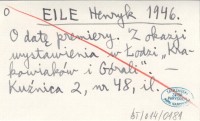 O EILE Henryk 1946.
O datę premiery. "Z okazji
wystawienia w Łodzi "Kra-
kowiaków i Górali". -
Kuźnica 2, nr 48, il.
bT/014/0189